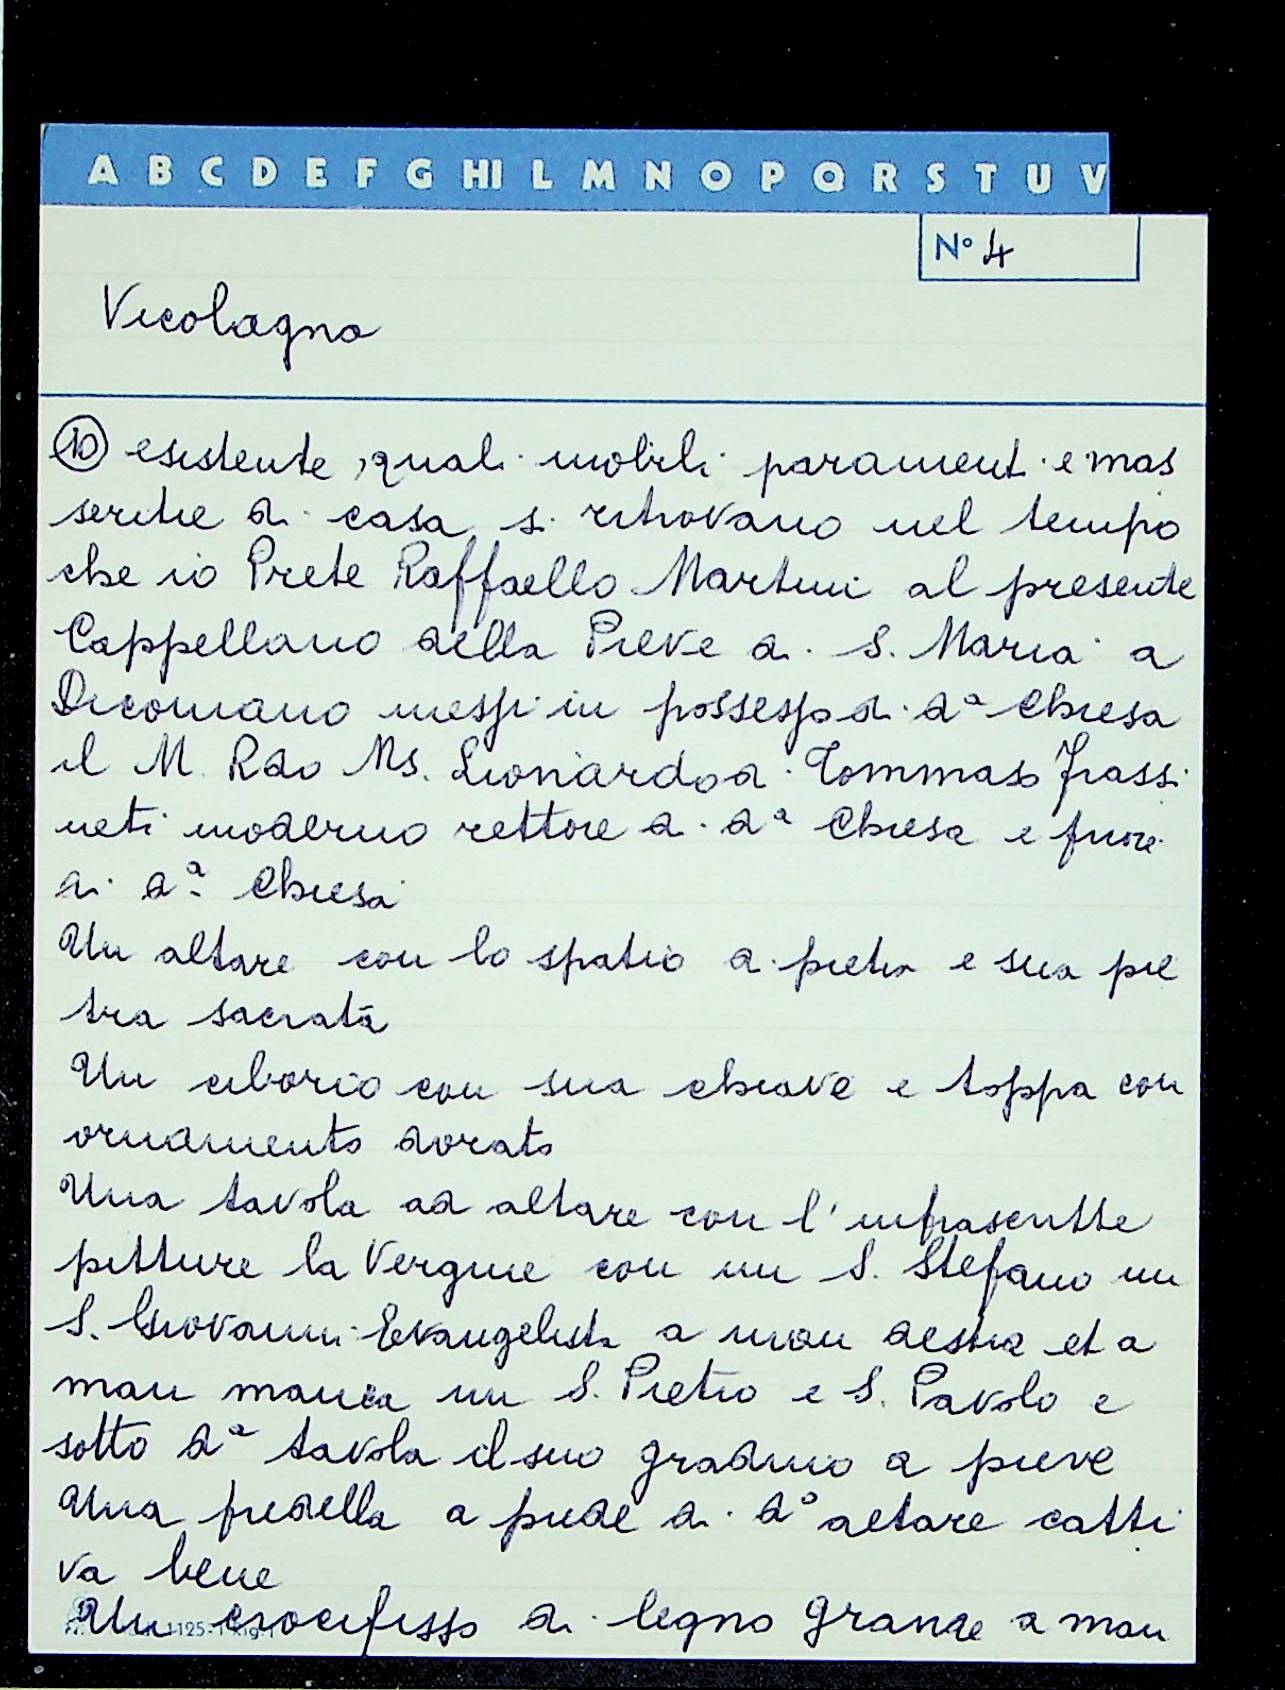 A B C D E F G HI L M N O P Q R S T U V
N° 4
Vicolagna
10 esistente, quali mobili parament. e mas
seritie di casa si ritrovano nel tempo
che io Prete Raffaello Martini al presente
Cappellano della Pieve di S. Maria a
Dicomano messi in possesso di da Chiesa
il M. Rdo Ms. Lionardo di Tommaso Frassi
neti moderno rettore di da Chiesa e fuori
di da Chiesa
Un altare con lo spatio di pietra e sua pie
tra sacrata
Un ciborio con sua chiave e toppa con
ornamento dorato
Una tavola ad altare con l'infrascritte
pitture la Vergine con un S. Stefano un
S. Giovanni Evangelista a man destra et a
man manca un S. Pietro e S. Pavolo e
sotto da tavola il suo gradino a pieve
Una predella a piede di do altare catti
va bene
Un crocifisso di legno grande a man